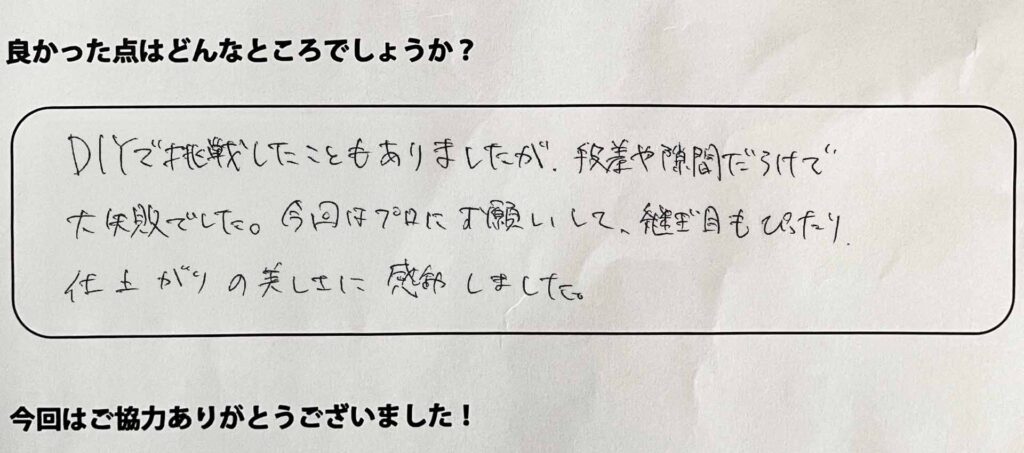 良かった点はどんなところでしょうか？
DIYで挑戦したこともありましたが、段差や隙間だらけで
大失敗でした。今回はプロにお願いして、継ぎ目もぴったり、
仕上がりの美しさに感動しました。
今回はご協力ありがとうございました！